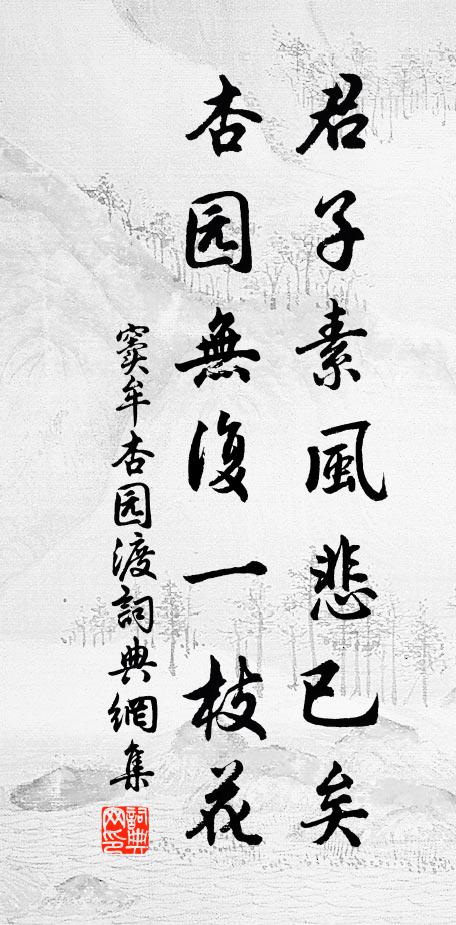 君子素風悲已矣
杏园無復一枝花
窦牟杏园渡詞典網集
詞典网印